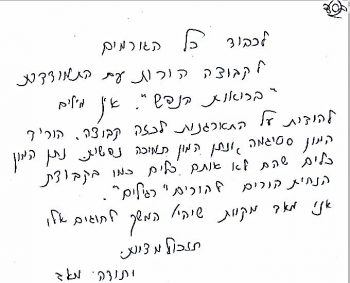 בס"ד
לכבוד כל הגורמים
לקבוצה הורות עם התמודדות
"בריאות הנפש". אין מילים
להודות על התארגנות לכזה קבוצה. הוריד
המון סטיגמה ונתן המון תמיכה נפשית נתן המון
כלים שהם לא אותם כלים כמו בקבוצת
הנחית הורים להורים "רגילים".
אני מאד מקוות שיהיו המשך לחוגים אלו
תזכו למצוות
ותודה מאד